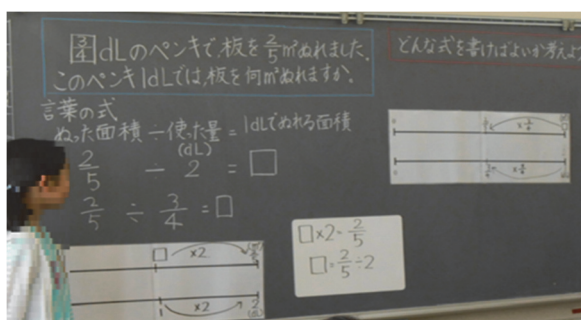 3/4 dLのペンキで、板を2/5 m²ぬれました。
このペンキ1dLでは、板を何m²ぬれますか。
どんな式を書けばよいか考えよ
言葉の式
ぬった面積÷使った量=1dLでぬれる面積
(dL)
2/5 ÷ 2 = □
2/5 ÷ 3/4 = □
□ ×2
×2
1 2
□×2=2/5
□=2/5÷2